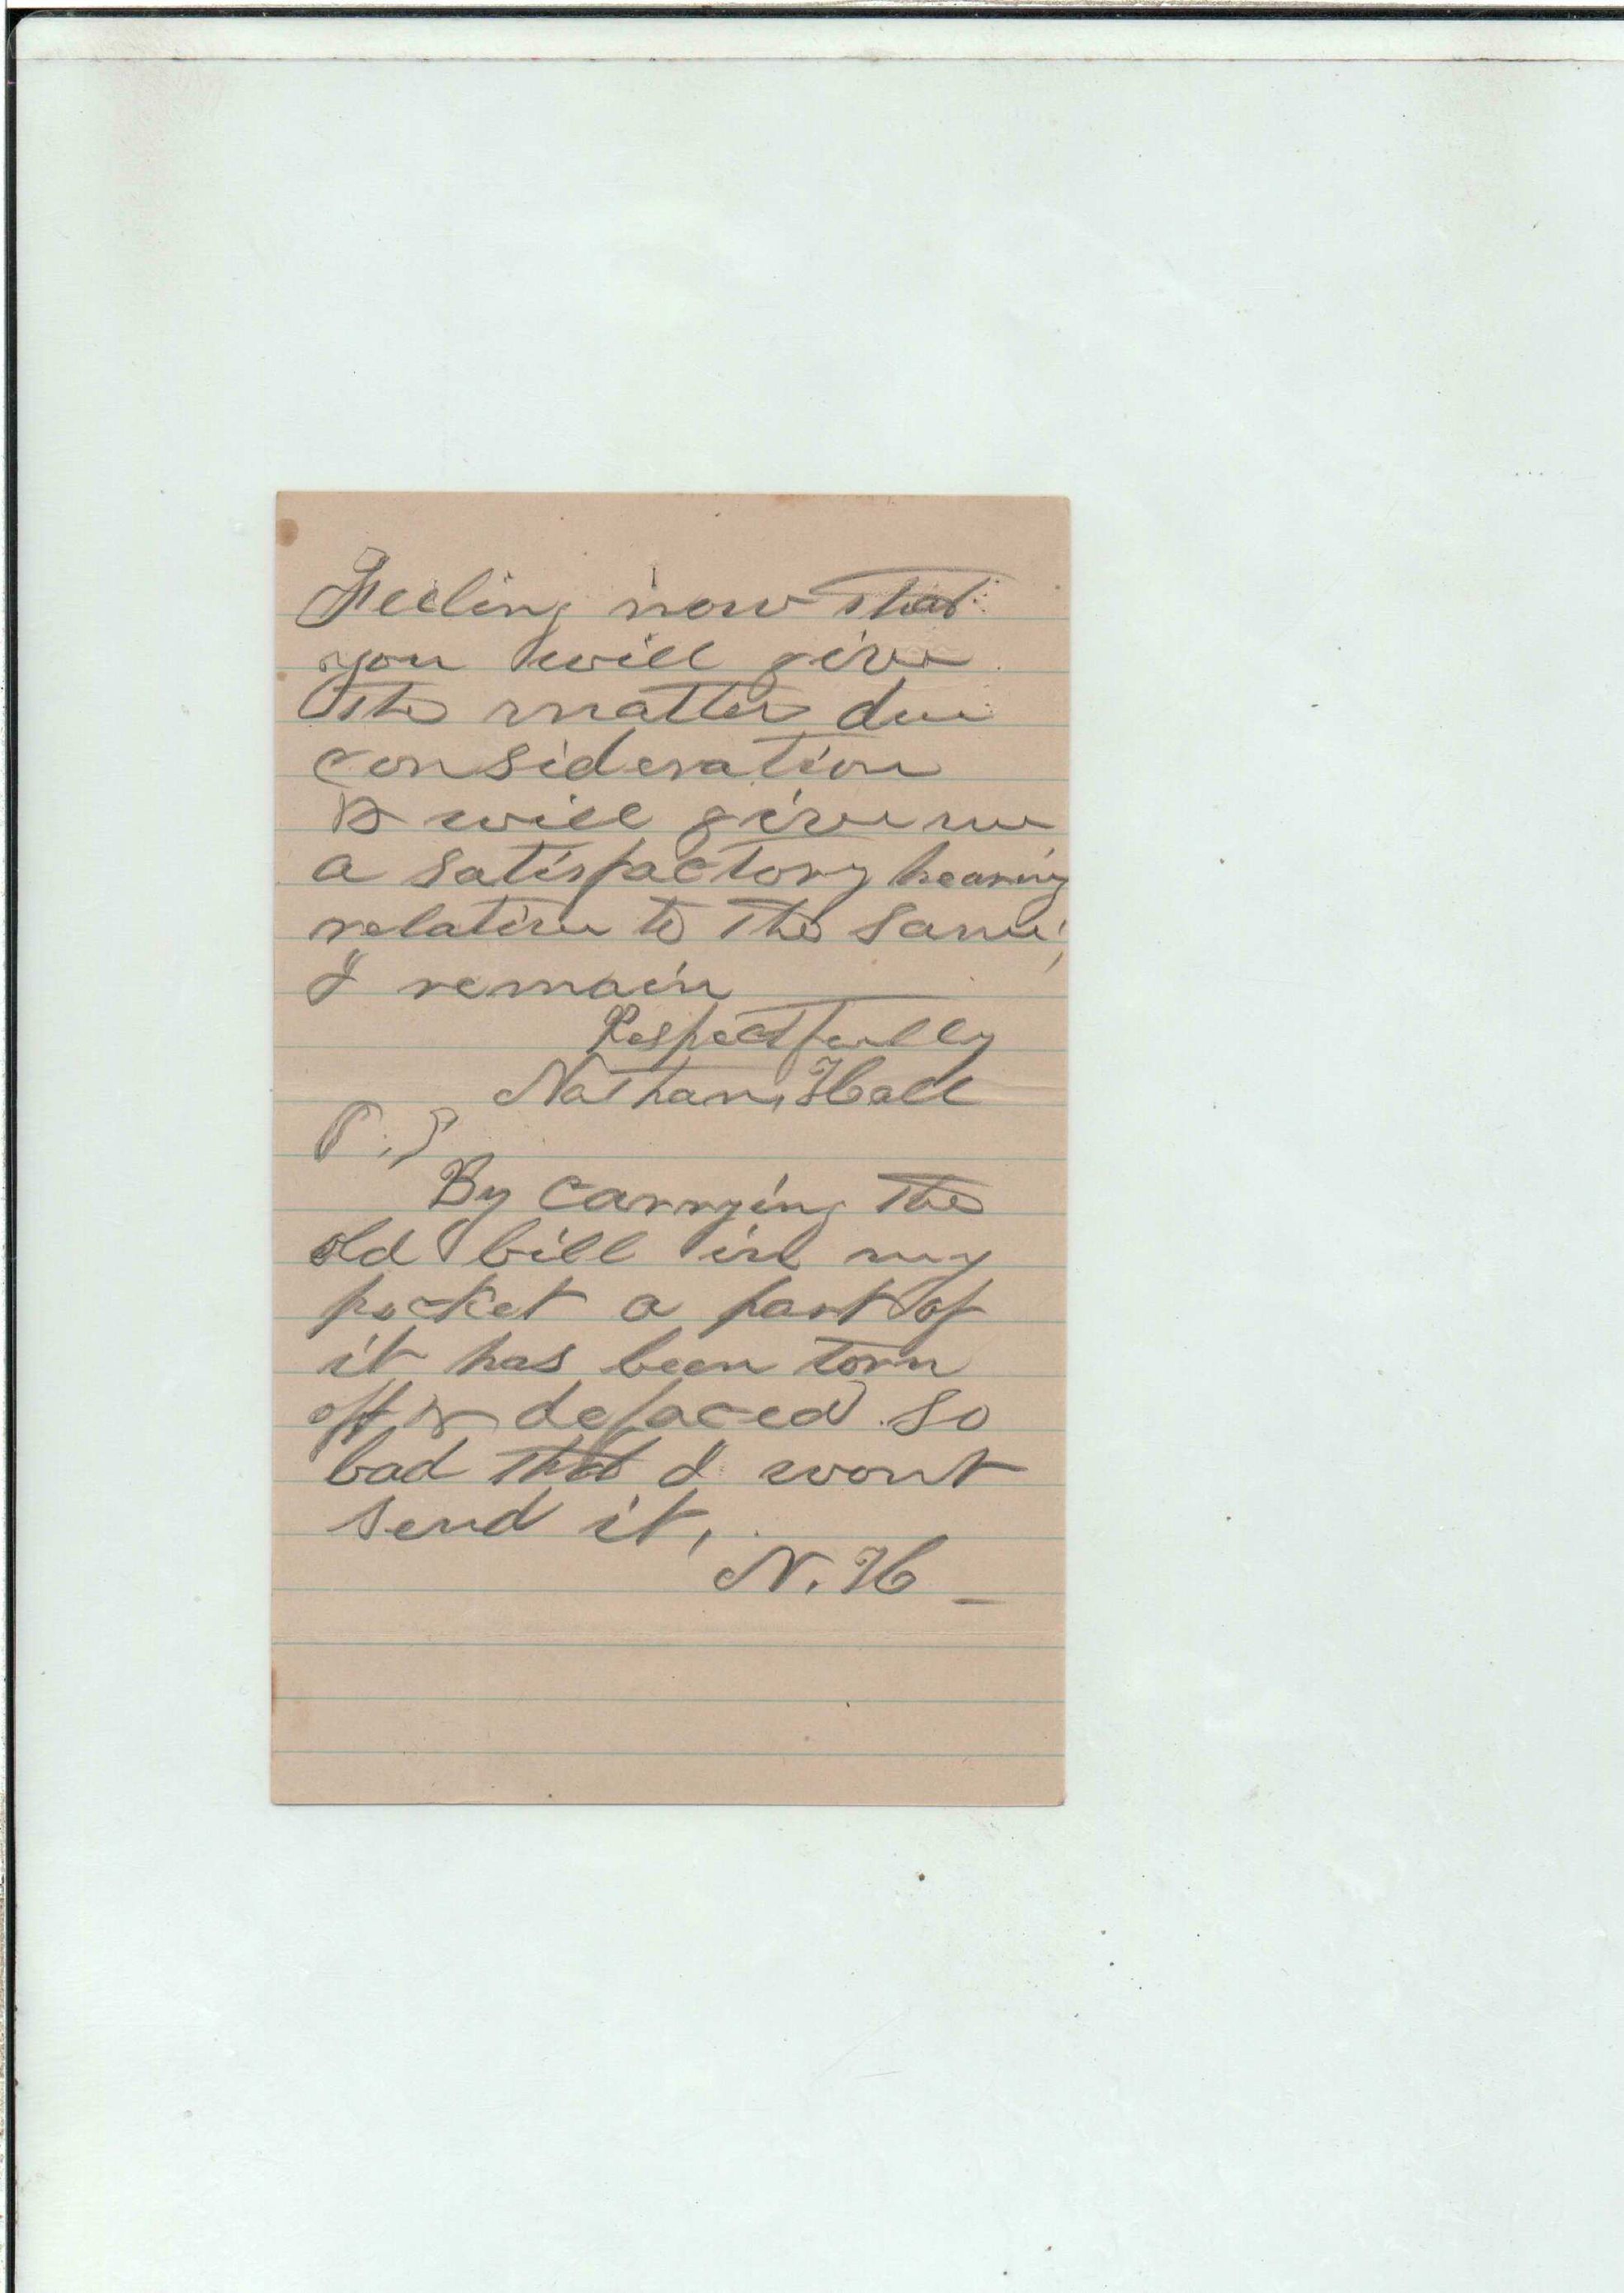 Feeling now that
you will give
the matter due
consideration
& will give me
a satisfactory hearing
relative to the same,
I remain
Respectfully
Nathan Hall
P.S
By carrying the
old bill in my
pocket a part of
it has been torn
off & defaced so
bad that I wont
send it,
N. H